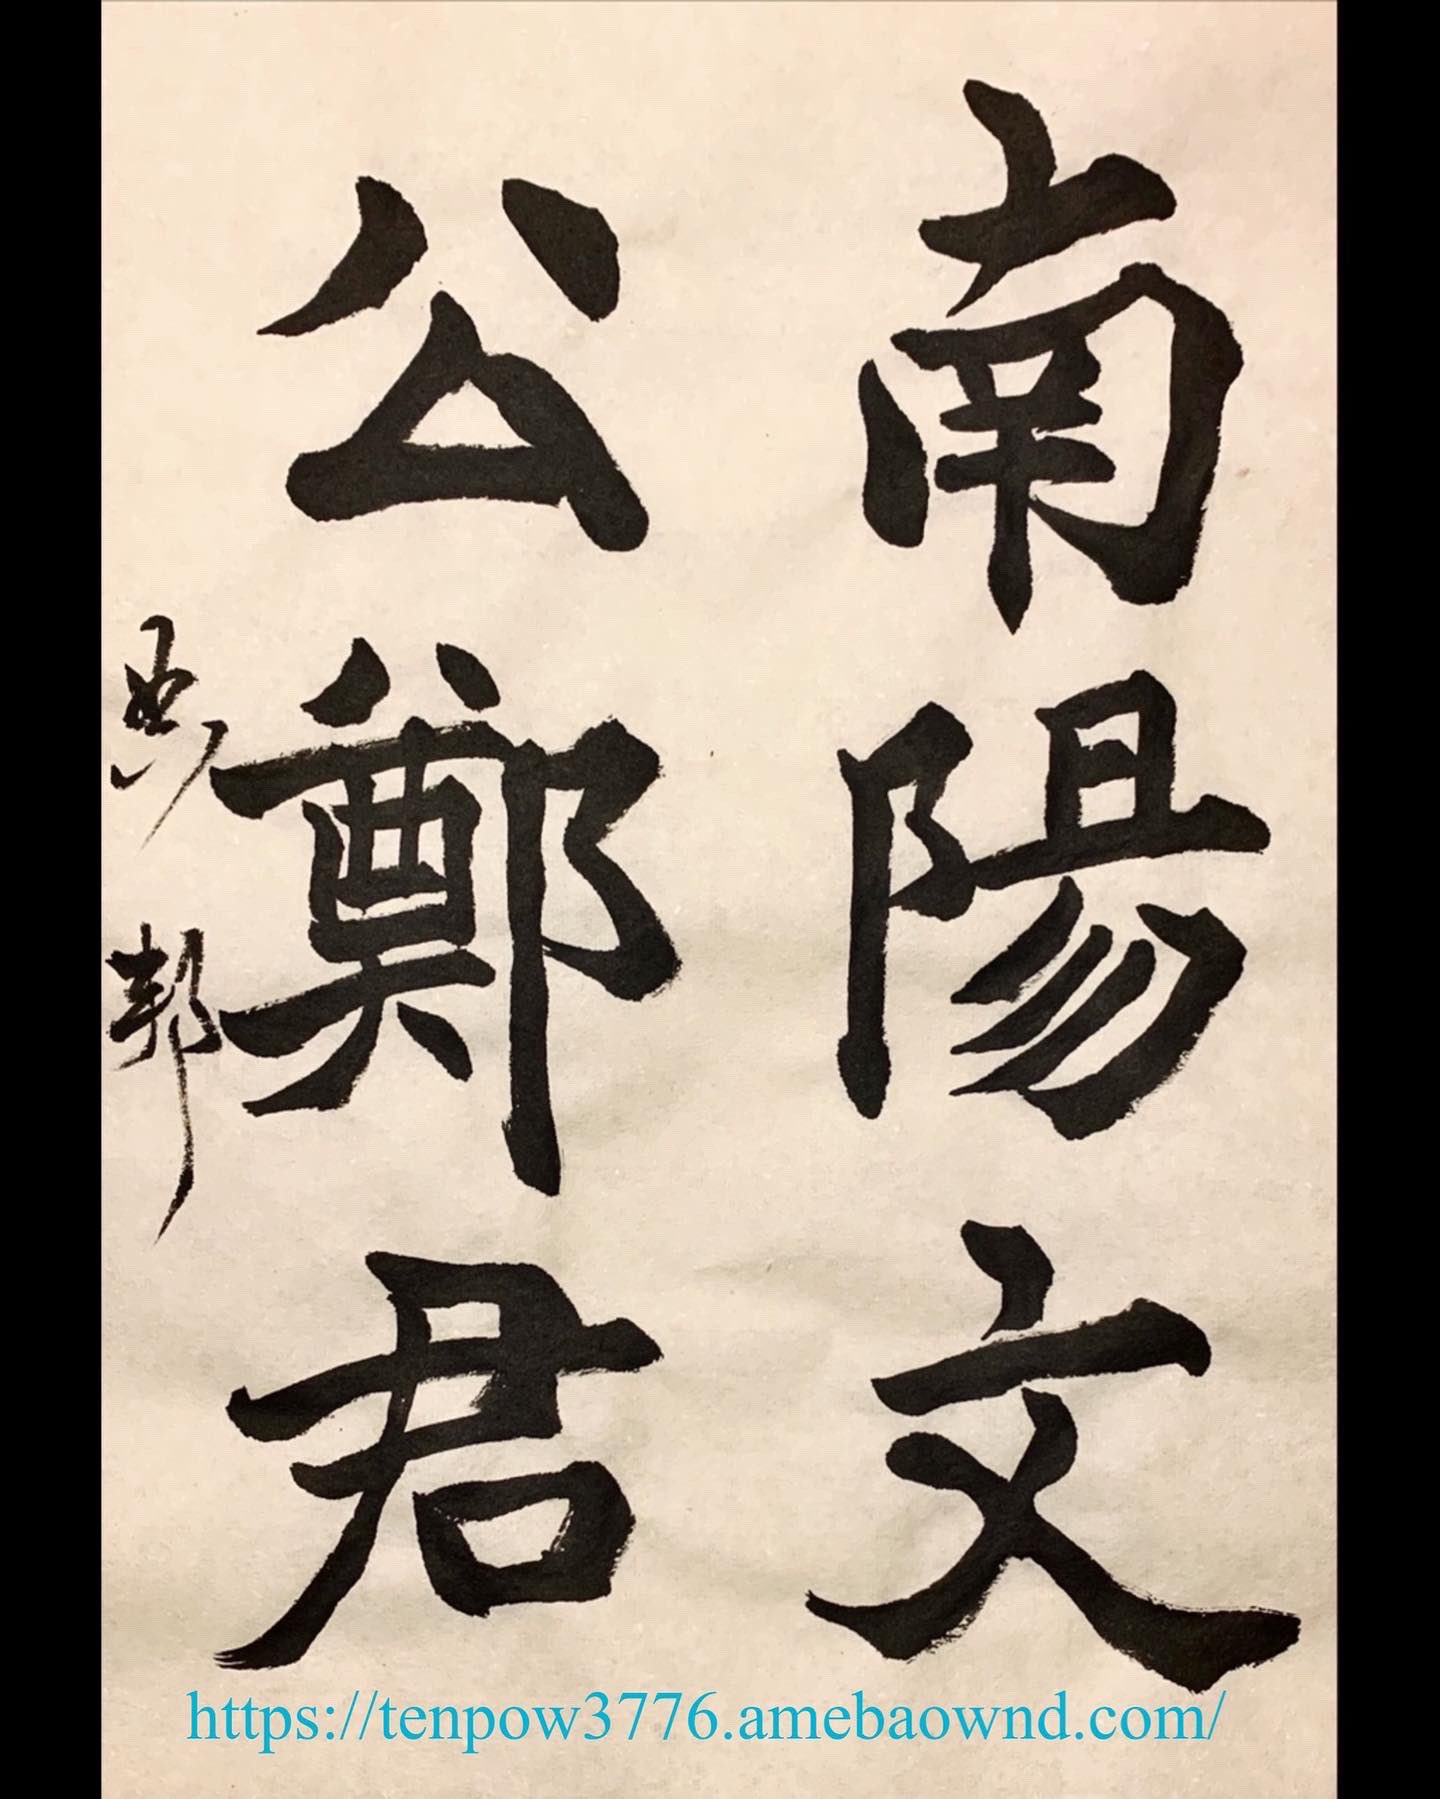 南陽文
公鄭君
https://tenpow3776.amebaownd.com/